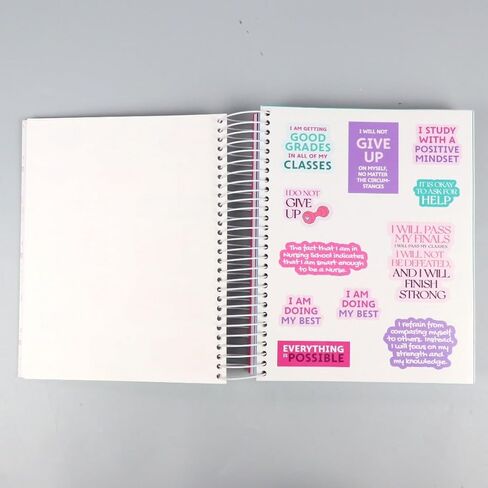 I AM GETTING
GOOD
GRADES
IN ALL OF MY
CLASSES
I WILL NOT
GIVE
UP
ON MYSELF,
NO MATTER
THE CIRCUM-
STANCES
I STUDY
WITH A
POSITIVE
MINDSET
IT IS OKAY
TO ASK FOR
HELP
I DO NOT
GIVE
UP
I WILL PASS
MY FINALS
I WILL PASS MY CLASSES.
I WILL NOT
BE DEFEATED,
AND I WILL
FINISH
STRONG
The fact that I am in
Nursing School indicates
that I am smart enough
to be a Nurse.
I AM
DOING
MY BEST
I AM
DOING
MY BEST
I refrain from
comparing myself
to others. Instead,
I will focus on my
strength and
my knowledge.
EVERYTHING
IS POSSIBLE